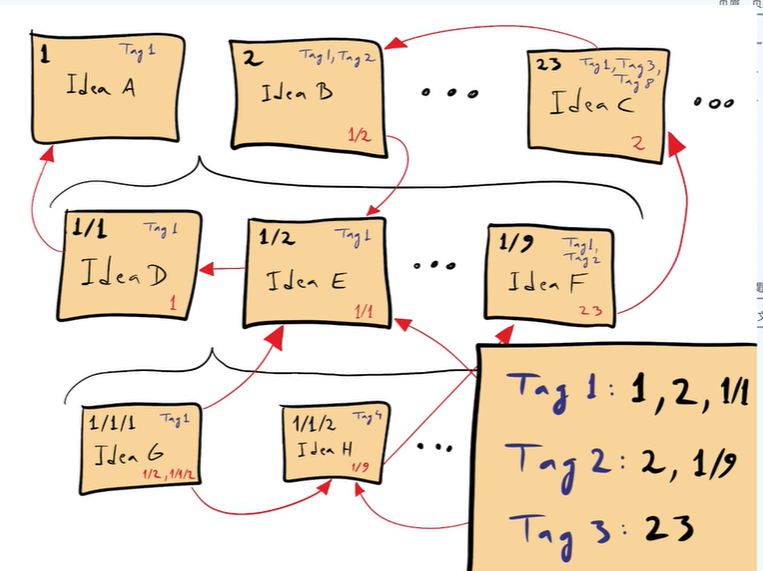 1 Tag 1
Idea A
2 Tag1, Tag2
Idea B
1/2
23 Tag1, Tag3,
Tag 8
Idea C
2
1/1 Tag 1
Idea D
1
1/2 Tag 1
Idea E
1/1
1/9 Tag1,
Tag2
Idea F
23
1/1/1 Tag1
Idea G
1/2, 1/1/2
1/1/2 Tag4
Idea H
1/9
Tag 1: 1, 2, 1/1
Tag 2: 2, 1/9
Tag 3: 23